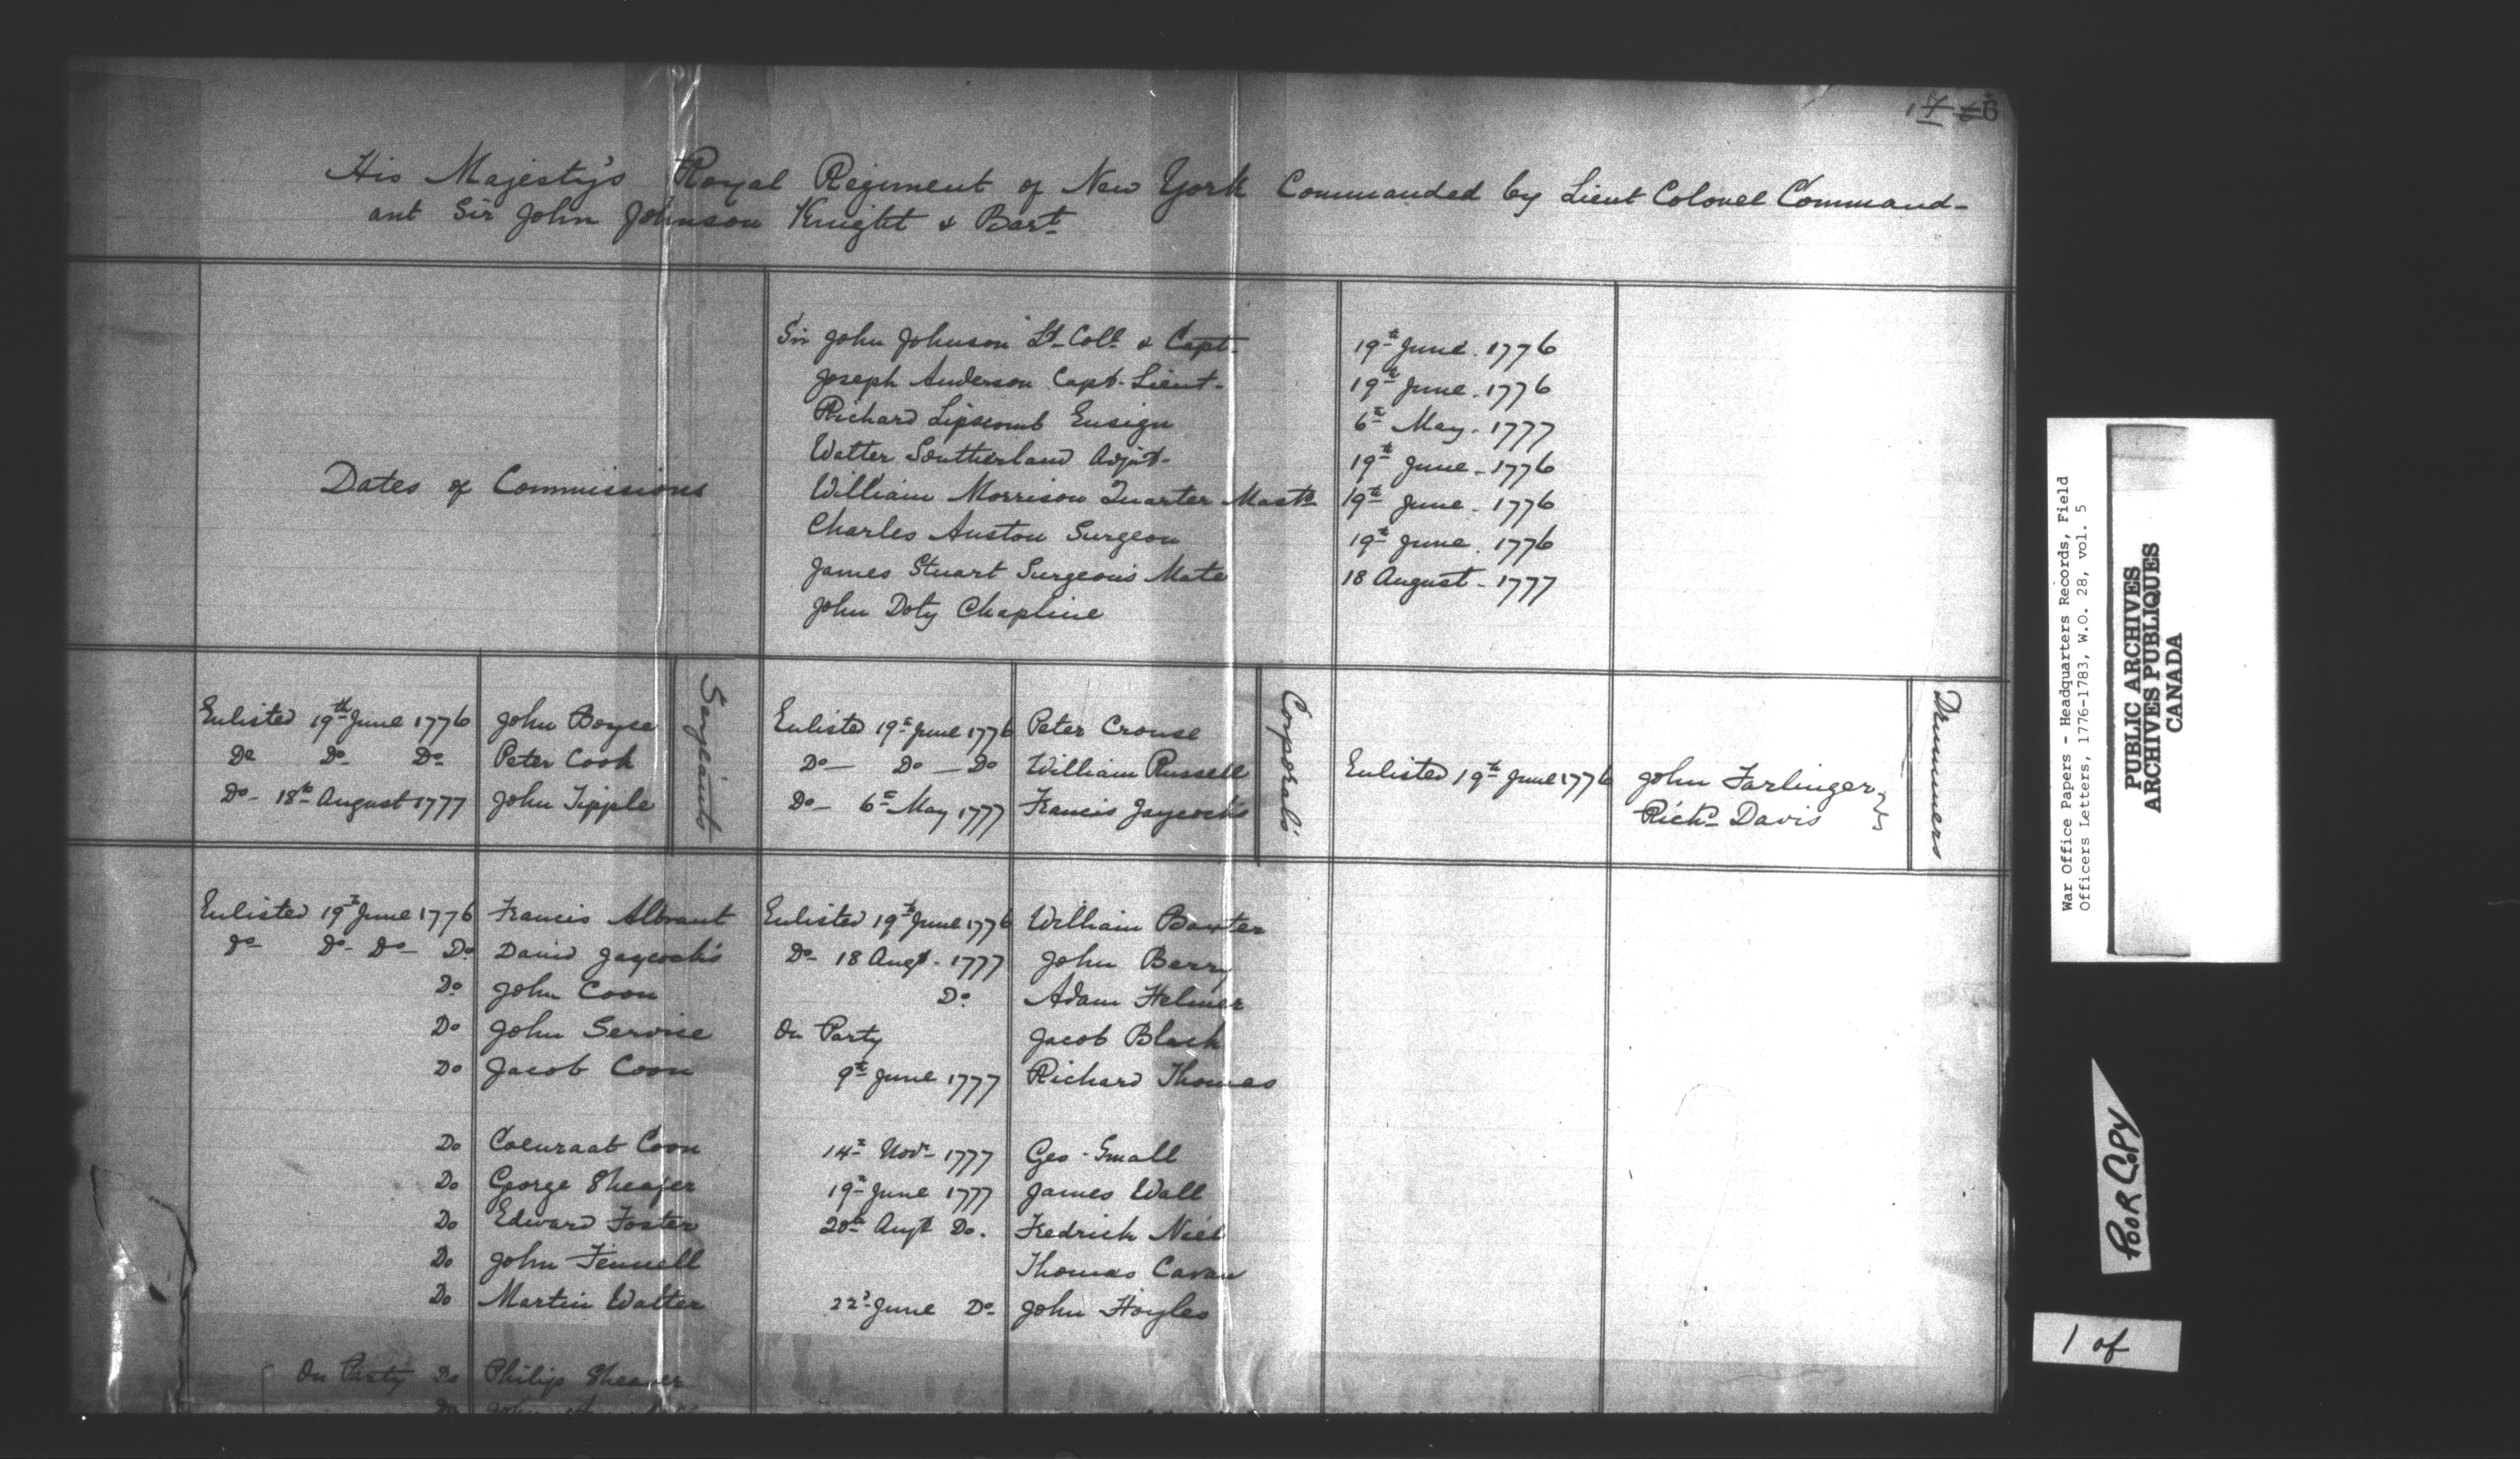 His Majesty's Royal Regiment of New York Commanded by Lieut Colonel Command-
ant Sir John Johnson Knight & Bart
Dates of Commissions
Sir John Johnson Lt Coll & Capt. 19th June. 1776
Joseph Anderson Capt. Lieut- 19th June. 1776
Richard Lipscomb Ensign 6th May. 1777
Walter Southerland Adjut- 19th June. 1776
William Morrison Quarter Mastr 19th June. 1776
Charles Auston Surgeon 19th June. 1776
James Stuart Surgeon's Mate 18 August- 1777
John Doty Chapline
Enlisted 19th June 1776 John Boyce
Do Do Do Peter Cook
Do- 18th August 1777 John Tipple
Serjeants
Enlisted 19th June 1776 Peter Crouse
Do- Do- Do William Russell
Do- 6th May 1777 Francis Jaycocks
Corporals
Enlisted 19th June 1776 John Farlinger
Richd Davis
Drummers
Enlisted 19th June 1776 Francis Albrant
Do Do- Do- Do David Jaycocks
Do John Coon
Do John Servise
Do Jacob Coon
Do Coenraat Coon
Do George Sheafer
Do Edward Foster
Do John Fennell
Do Martin Walter
On Party Do Philip Sheaver
Do John
Enlisted 19th June 1776 William Baxter
Do- 18 Augt. 1777 John Berry
Do. Adam Helmer
On Party Jacob Black
9th June 1777 Richard Thomas
14th Novr 1777 Geo. Small
19th June 1777 James Wall
20th Augt Do. Fredrick Niel
Thomas Cavan
22d June Do- John Hoyles
War Office Papers - Headquarters Records, Field
Officers Letters, 1776-1783, W.O. 28, vol. 5
PUBLIC ARCHIVES
ARCHIVES PUBLIQUES
CANADA
POOR COPY
1 of